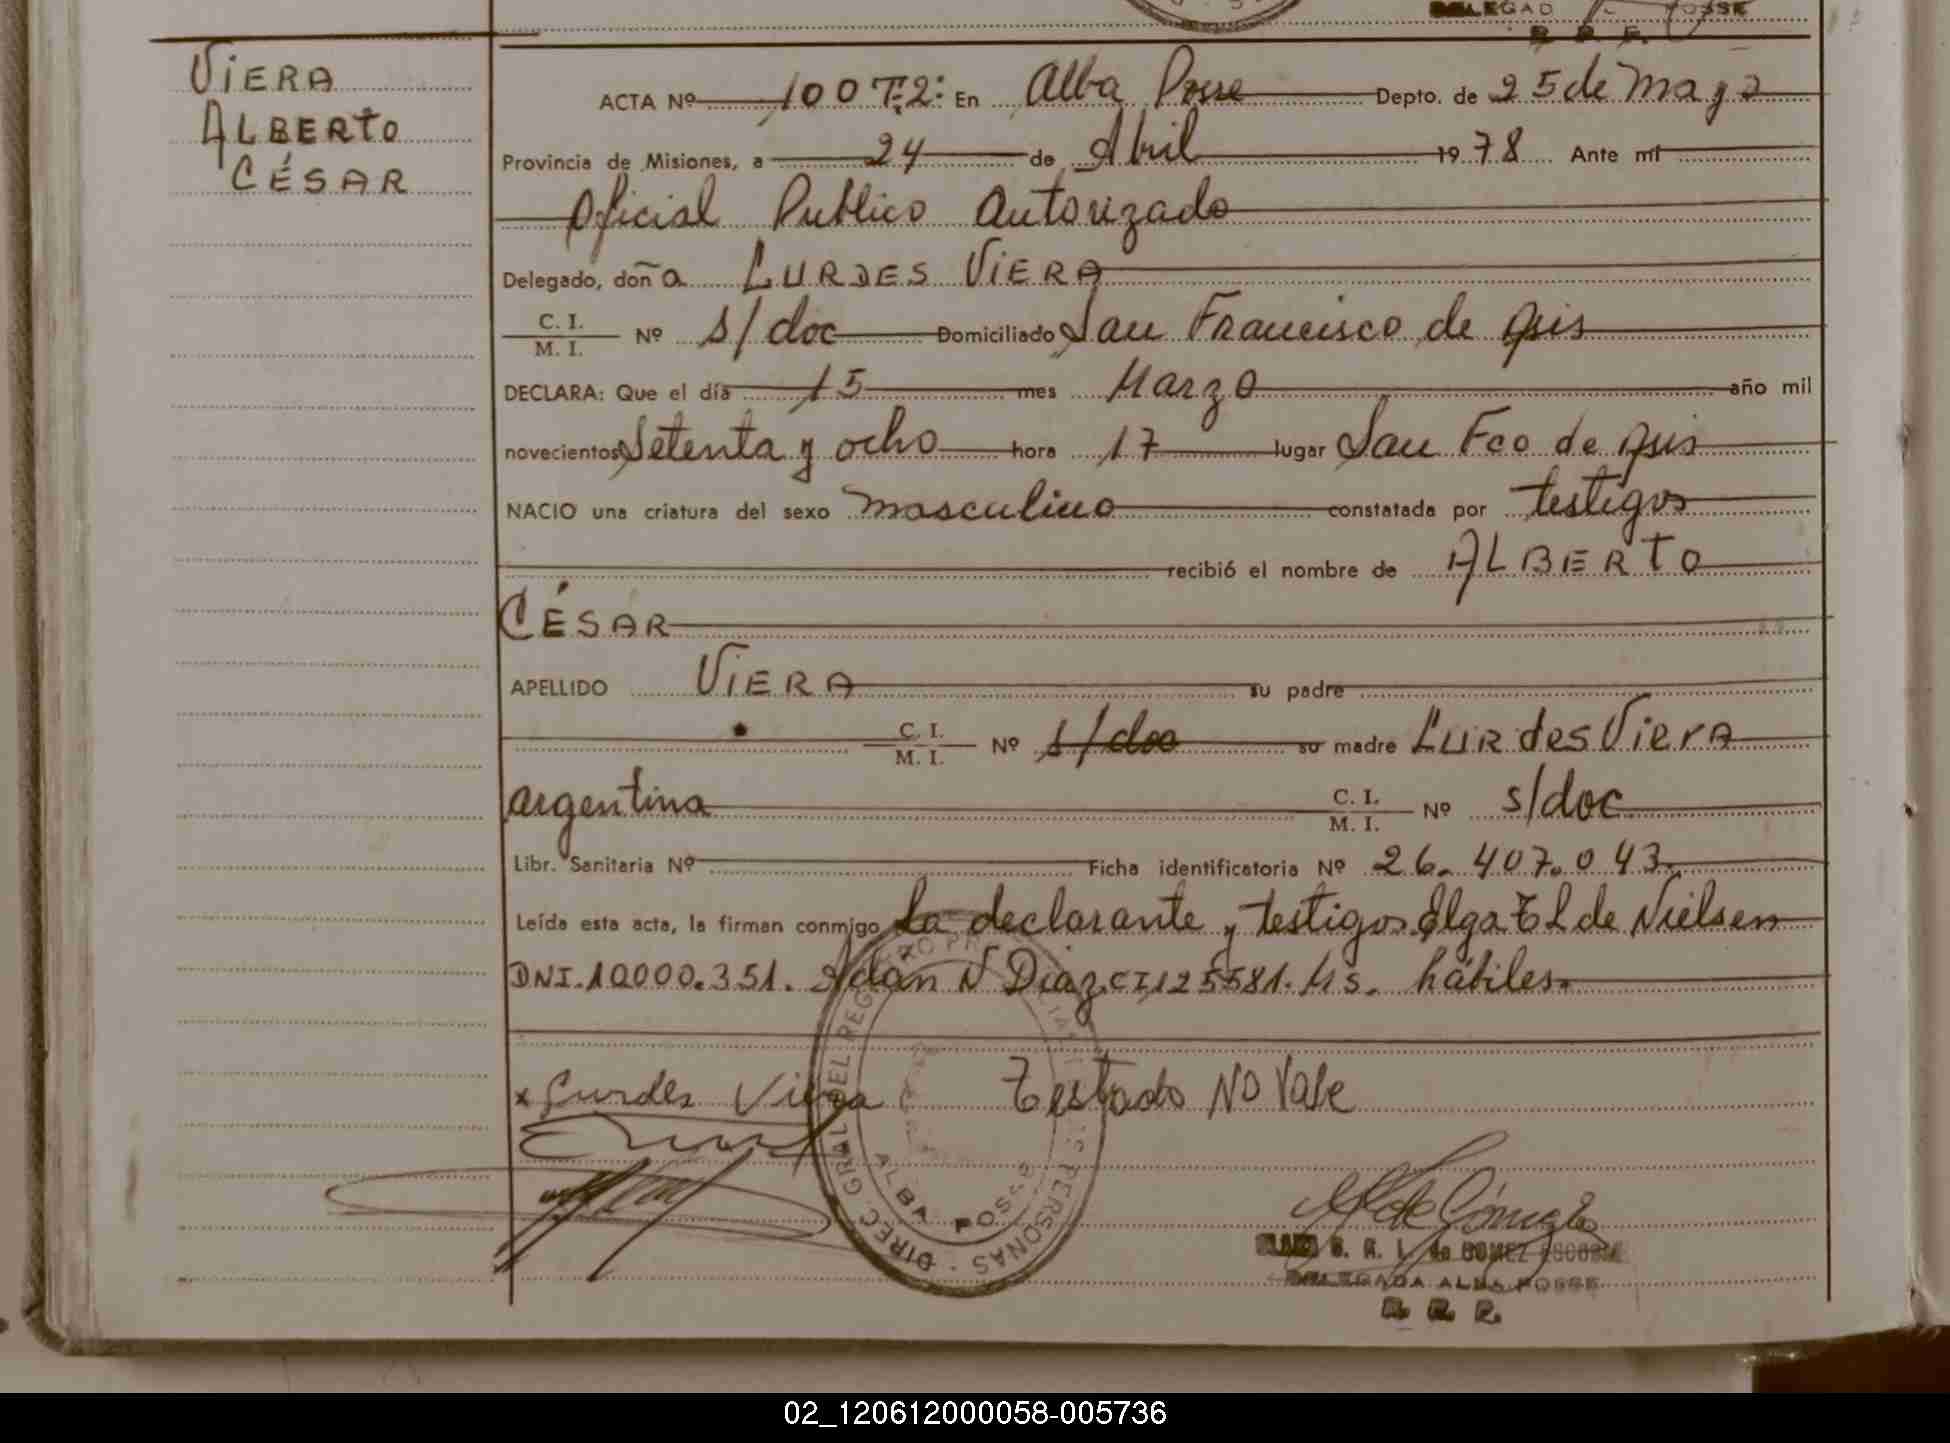 DELEGAD POSSE
R. R. P.
VIERA
ALBERTO
CÉSAR
ACTA Nº 100 T:2: En Alba Posse Depto. de 25 de Mayo
Provincia de Misiones, a 24 de Abril 1978 Ante mí
Oficial Publico Autorizado
Delegado, doña LURDES VIERA
C. I.
M. I. Nº s/doc Domiciliado San Francisco de Asis
DECLARA: Que el día 15 mes Marzo año mil
novecientos Setenta y ocho hora 17 lugar San Fco de Asis
NACIO una criatura del sexo masculino constatada por testigos
recibió el nombre de ALBERTO
CÉSAR
APELLIDO VIERA su padre
C. I.
M. I. Nº s/doc su madre Lurdes Viera
argentina C. I.
M. I. Nº s/doc
Libr. Sanitaria Nº Ficha identificatoria Nº 26.407.043
Leída esta acta, la firman conmigo La declarante y testigos Olga E L de Nielsen
DNI.10000.351. Adan N Diaz CI125581. Ms. hábiles.
x Lurdes Viera Testado NO Vale
DIREC. GRAL DEL REGISTRO PROVINCIAL DE LAS PERSONAS
ALBA POSSE
de GOMEZ
DELEGADA ALBA POSSE
R. R. P.
02_120612000058-005736